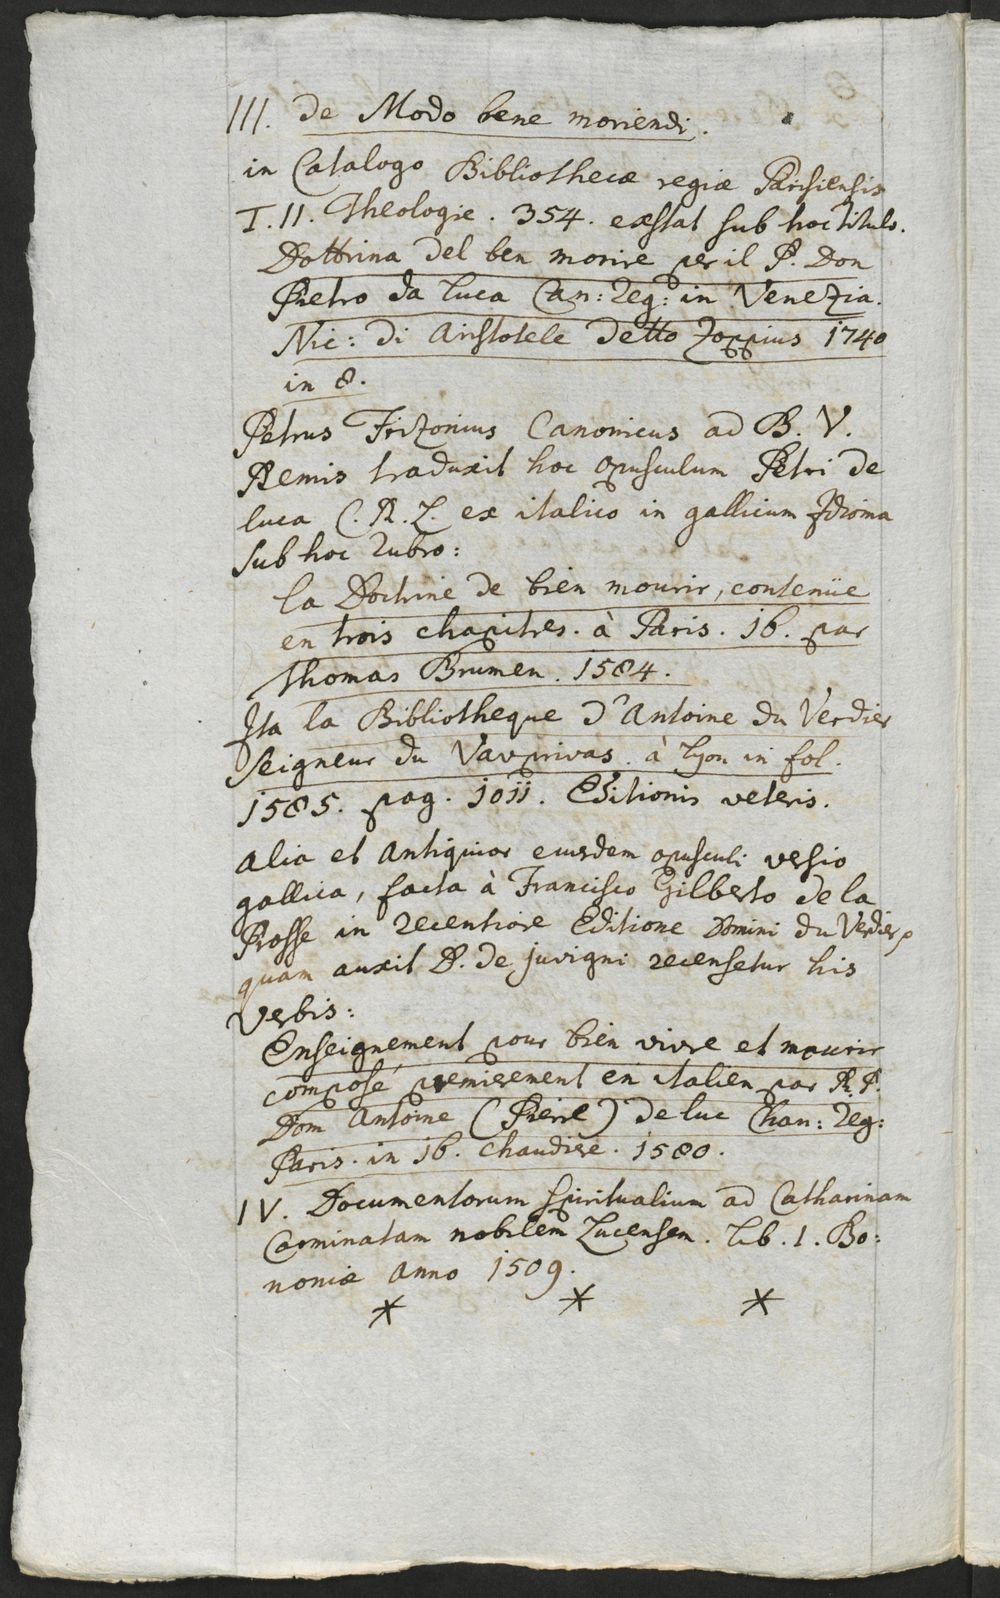 III. De Modo bene moriendi.
in Catalogo Bibliothecæ regiæ Parisiensis
T. II. Theologie. 354. exstat sub hoc titulo.
Dottrina del ben morire per il P. Don
Pietro da Luca Can: Reg: in Venezia.
Nic: di Aristotele detto Zoppius 1740
in 8.
Petrus Frizonius Canonicus ad B. V.
Remis traduxit hoc opusculum Petri de
Luca C. R. L. ex italico in gallicum Idioma
sub hoc Rubro:
La Doctrine de bien mourir, contenüe
en trois chapitres. à Paris. 16. par
Thomas Brumen. 1584.
Ita la Bibliotheque d'Antoine du Verdier
Seigneur du Vauprivas. à Lyon in fol.
1585. pag. 1011. Editionis veteris.
Alia et antiquior eiusdem opusculi versio
gallica, facta à Francisco Gilberto de la
Brosse in recentiore Editione Domini du Verdier,
quam auxit D. de juvigni recensetur his
verbis:
Enseignement pour bien vivre et mourir
composé premierement en italien par R. P.
Dom Antoine (Pierre) de luc Chan: Reg:
Paris. in 16. Chaudiere. 1580.
IV. Documentorum spiritualium ad Catharinam
Carminatam nobilem Lucensem. Lib. 1. Bo:
noniæ anno 1509.
* * *